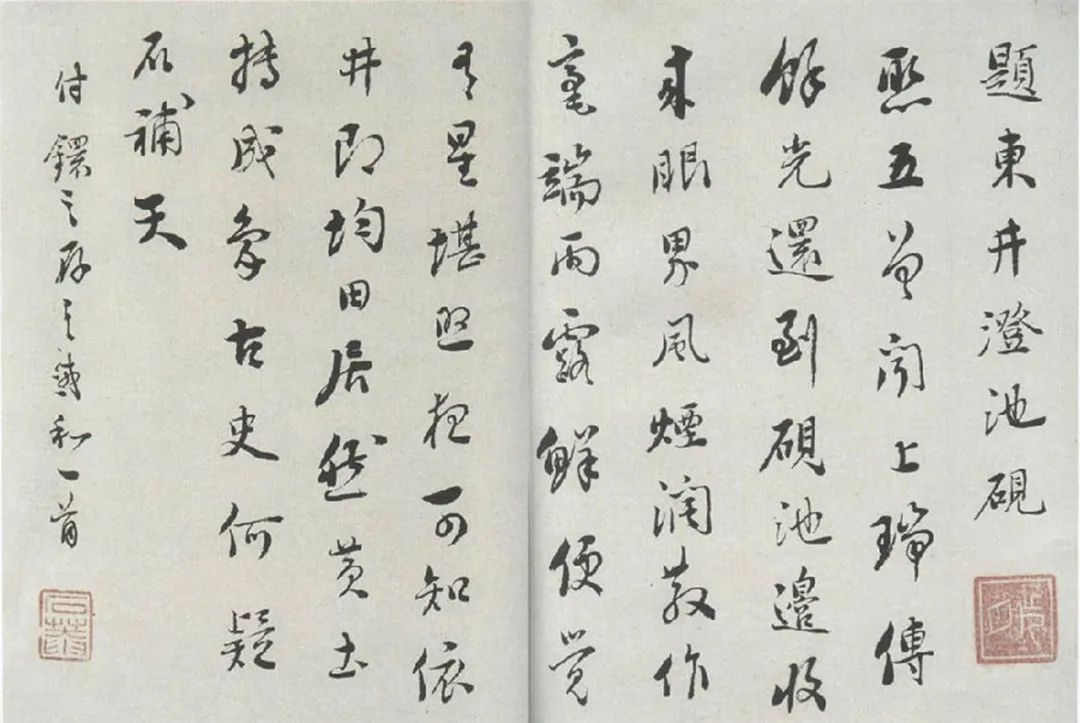 題東井澄池硯
聚五曾聞上瑞傳
餘光還到硯池邊收
來眼界風煙潤散作
毫端雨露鮮便覺
有星堪照夜可知依
井即均田居然黃土
摶成象古史何疑
石補天
付鐶之存之試和一首
石菴